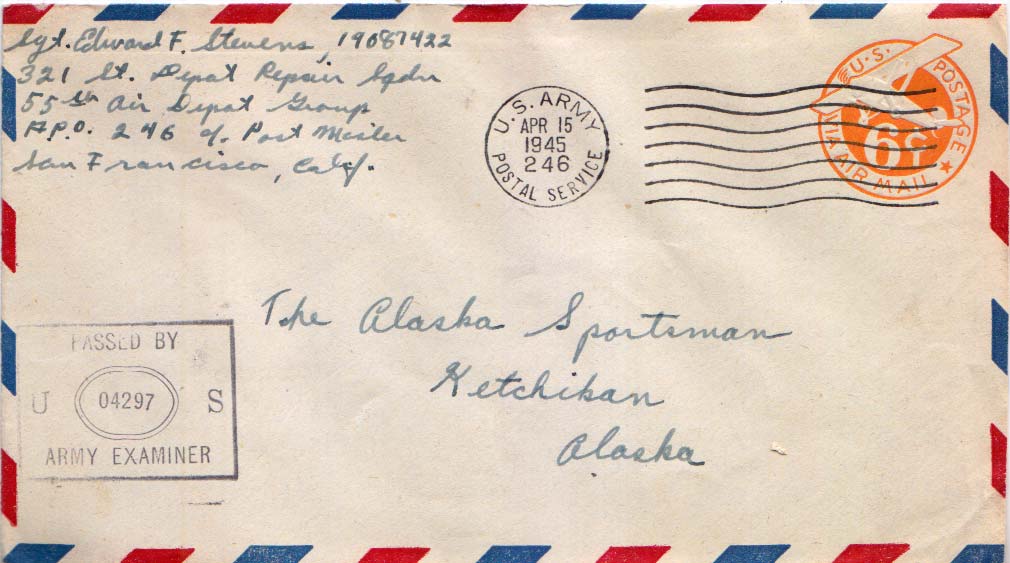 Sgt. Edward F. Stevens, 19087422
321 St. Depot Repair Sqdn
55th Air Depot Group
A.P.O. 246 c/o Post Master
San Francisco, Calif.
U.S. ARMY
APR 15
1945
246
POSTAL SERVICE
U.S. POSTAGE
6¢
VIA AIR MAIL
The Alaska Sportsman
Ketchikan
Alaska
PASSED BY
U 04297 S
ARMY EXAMINER